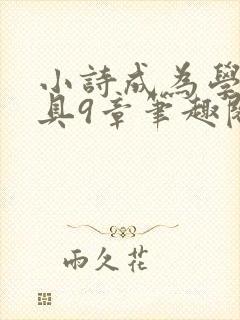 小詩成為學
具9章筆趣閣
雨久花